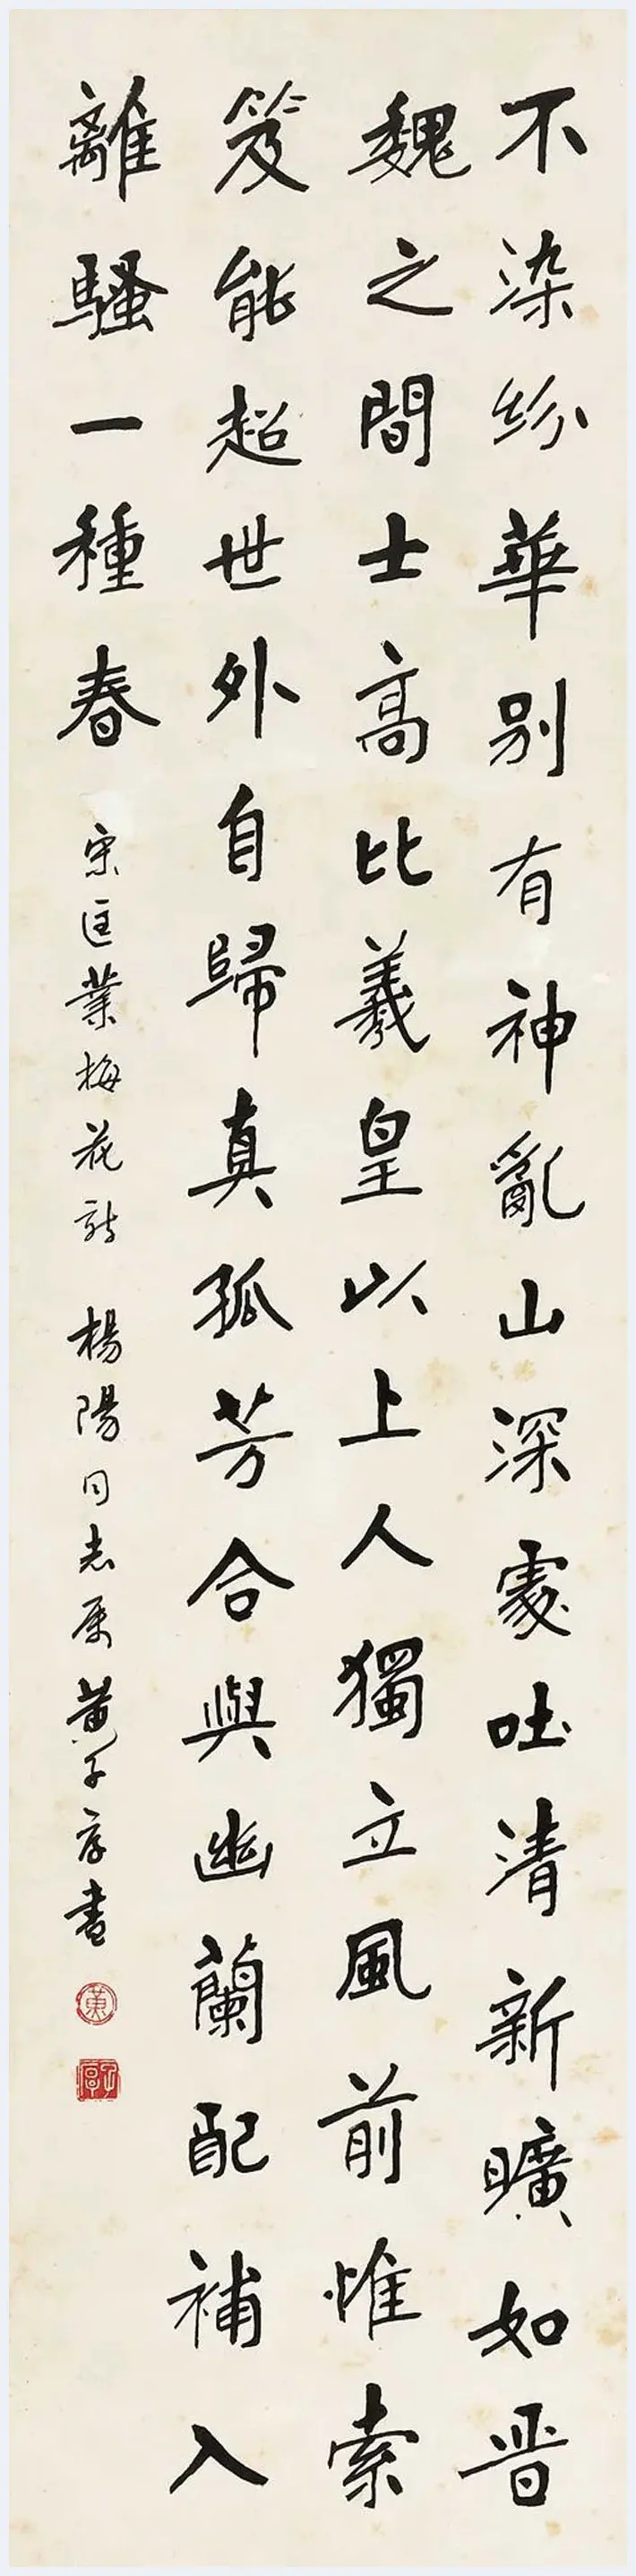 不染紛華別有神亂山深處吐清新曠如晉
魏之間士高比羲皇以上人獨立風前惟索
笑能超世外自歸真孤芳合與幽蘭配補入
離騷一種春
宋匡業梅花詩 楊陽同志屬 黃子厚書
黃